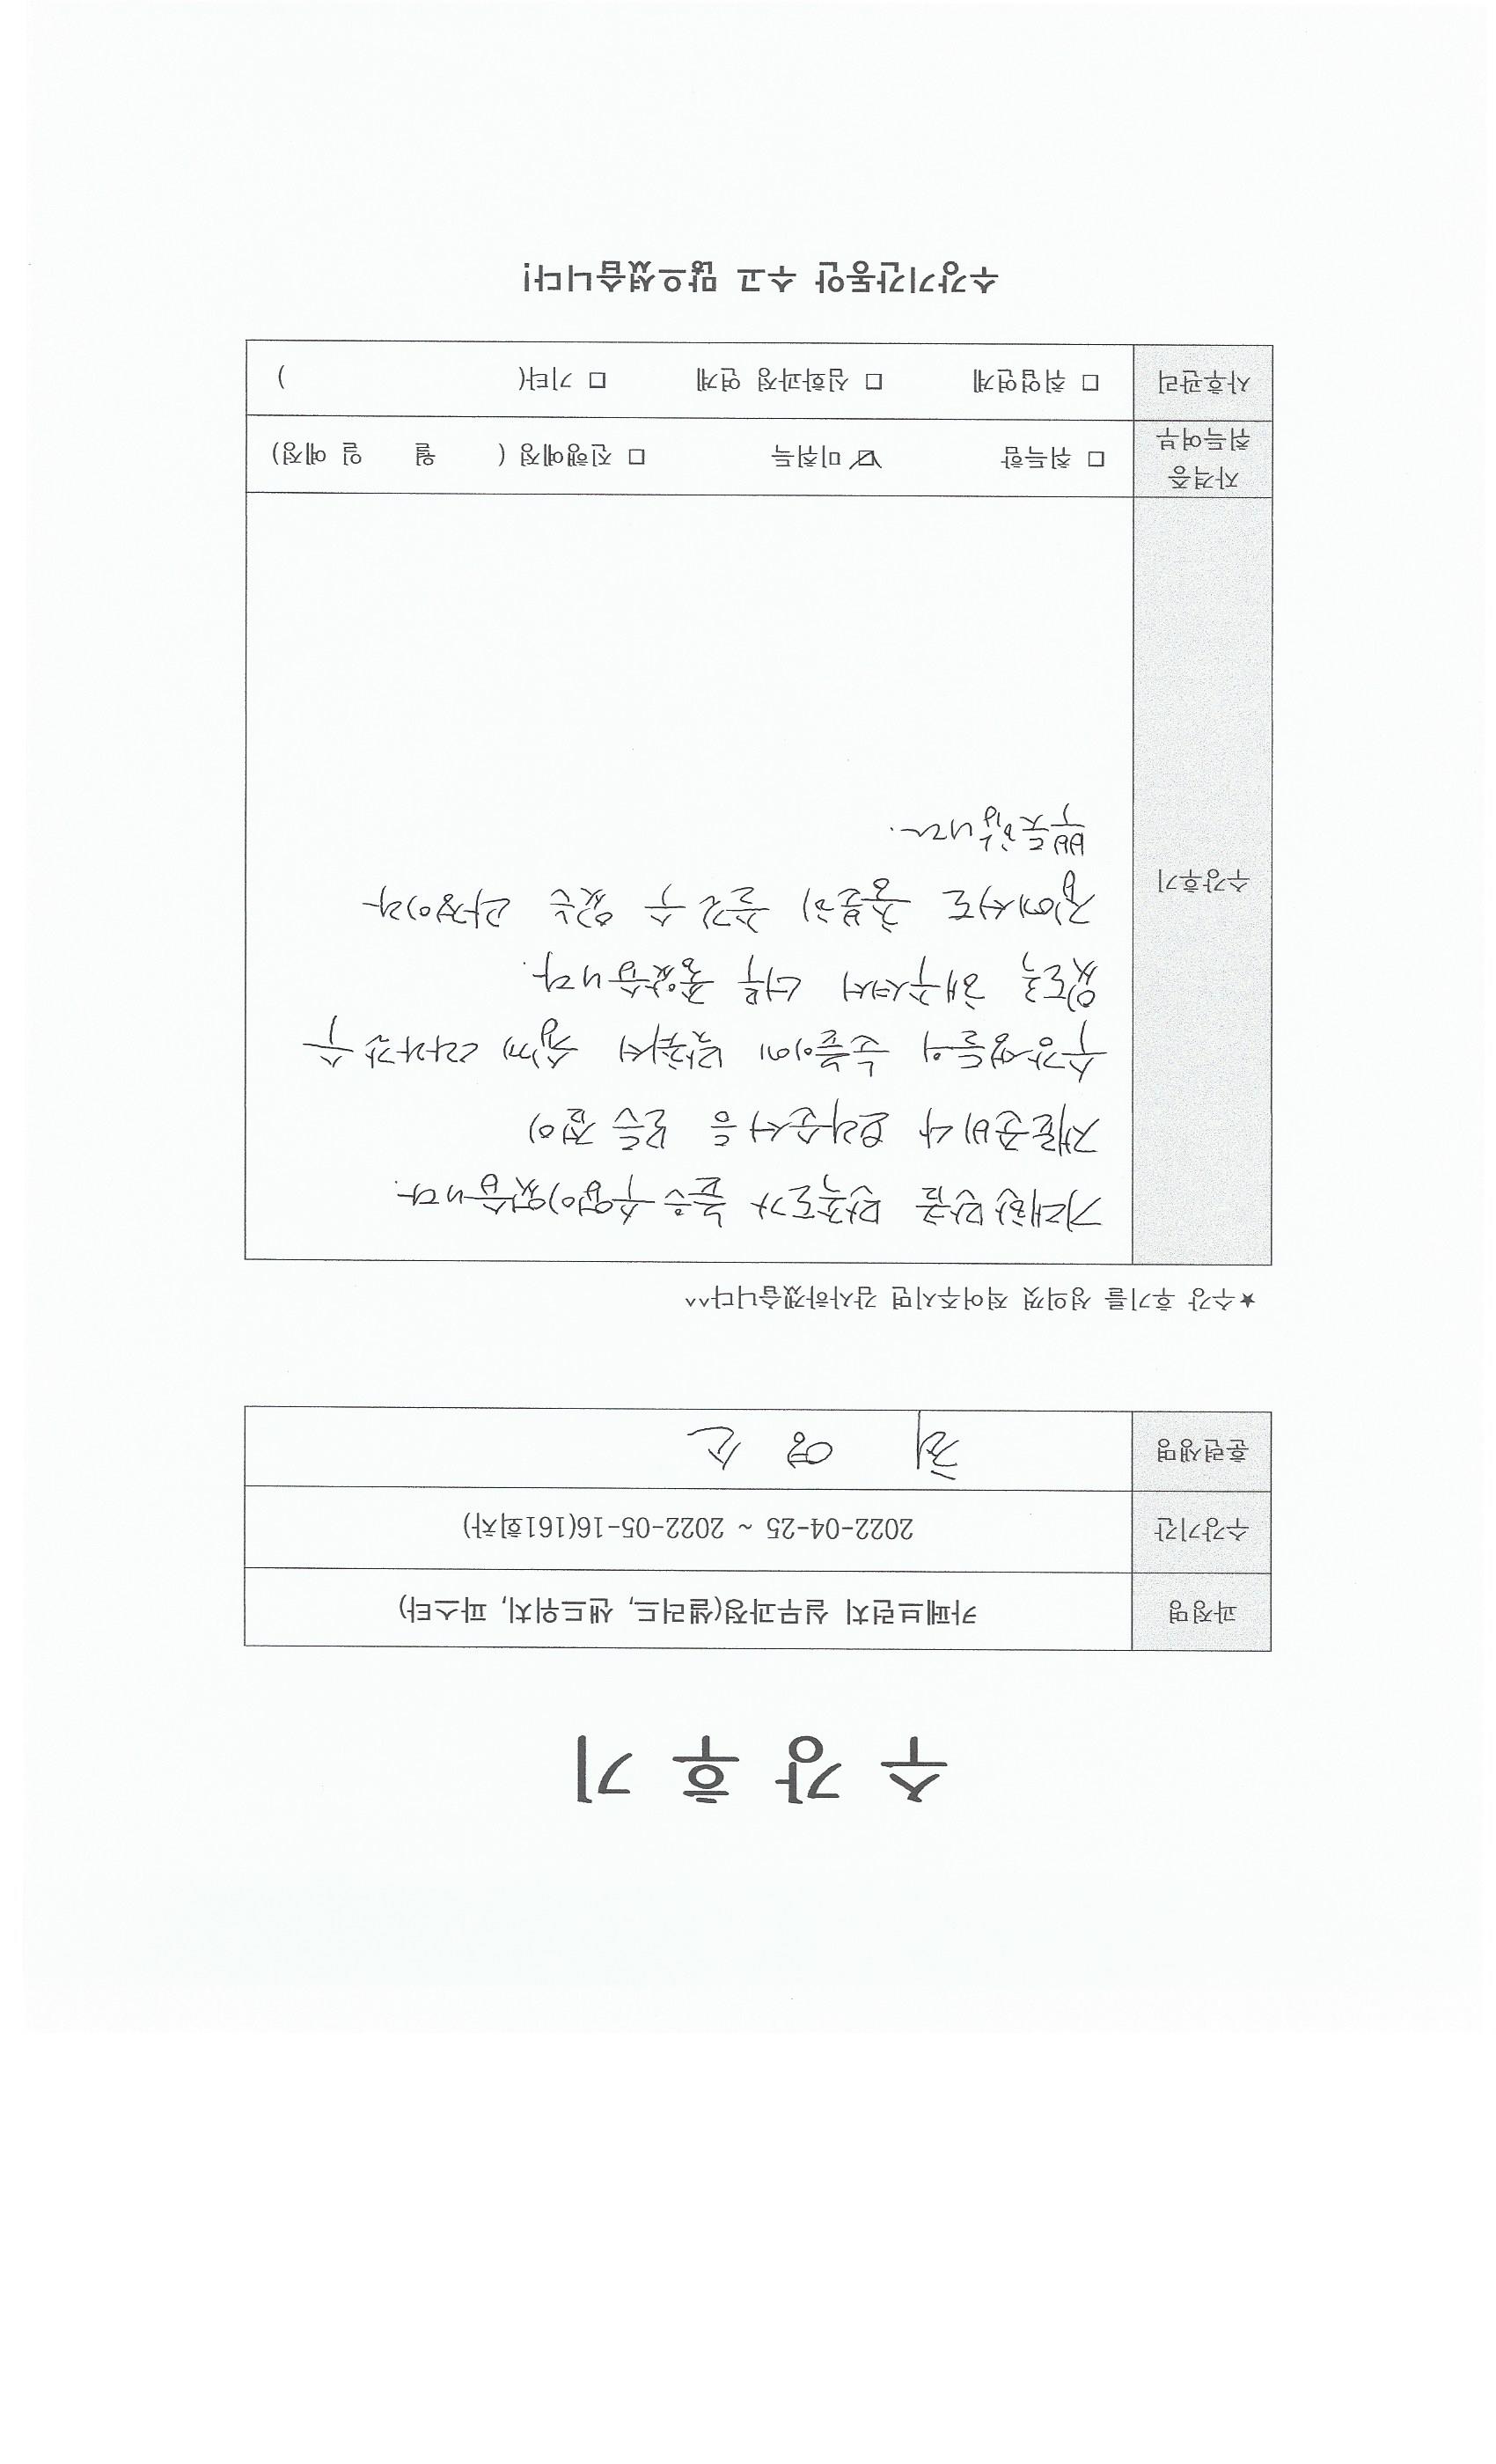 수 강 후 기
과정명 카페브런치 실무과정(샐러드, 샌드위치, 파스타)
수강기간 2022-04-25 ~ 2022-05-16(161회차)
훈련생명 최 영
★수강 후기를 성의껏 적어주시면 감사하겠습니다^^
기대한 만큼 만족도가 높은 수업이었습니다.
재료준비나 등 모든 점이
수강생들의 눈높이에 맞춰서 쉽게 따라갈 수
있도록 해주셔서 너무 좋았습니다.
수강후기 집에서도 충분히 즐길 수 있는 과정이라
뿌듯합니다.
자격증 취득여부 □ 취득함 ☑ 미취득 □ 진행예정 ( 월 일 예정)
사후관리 □ 취업연계 □ 심화과정 연계 □ 기타( )
수강기간동안 수고 많으셨습니다!